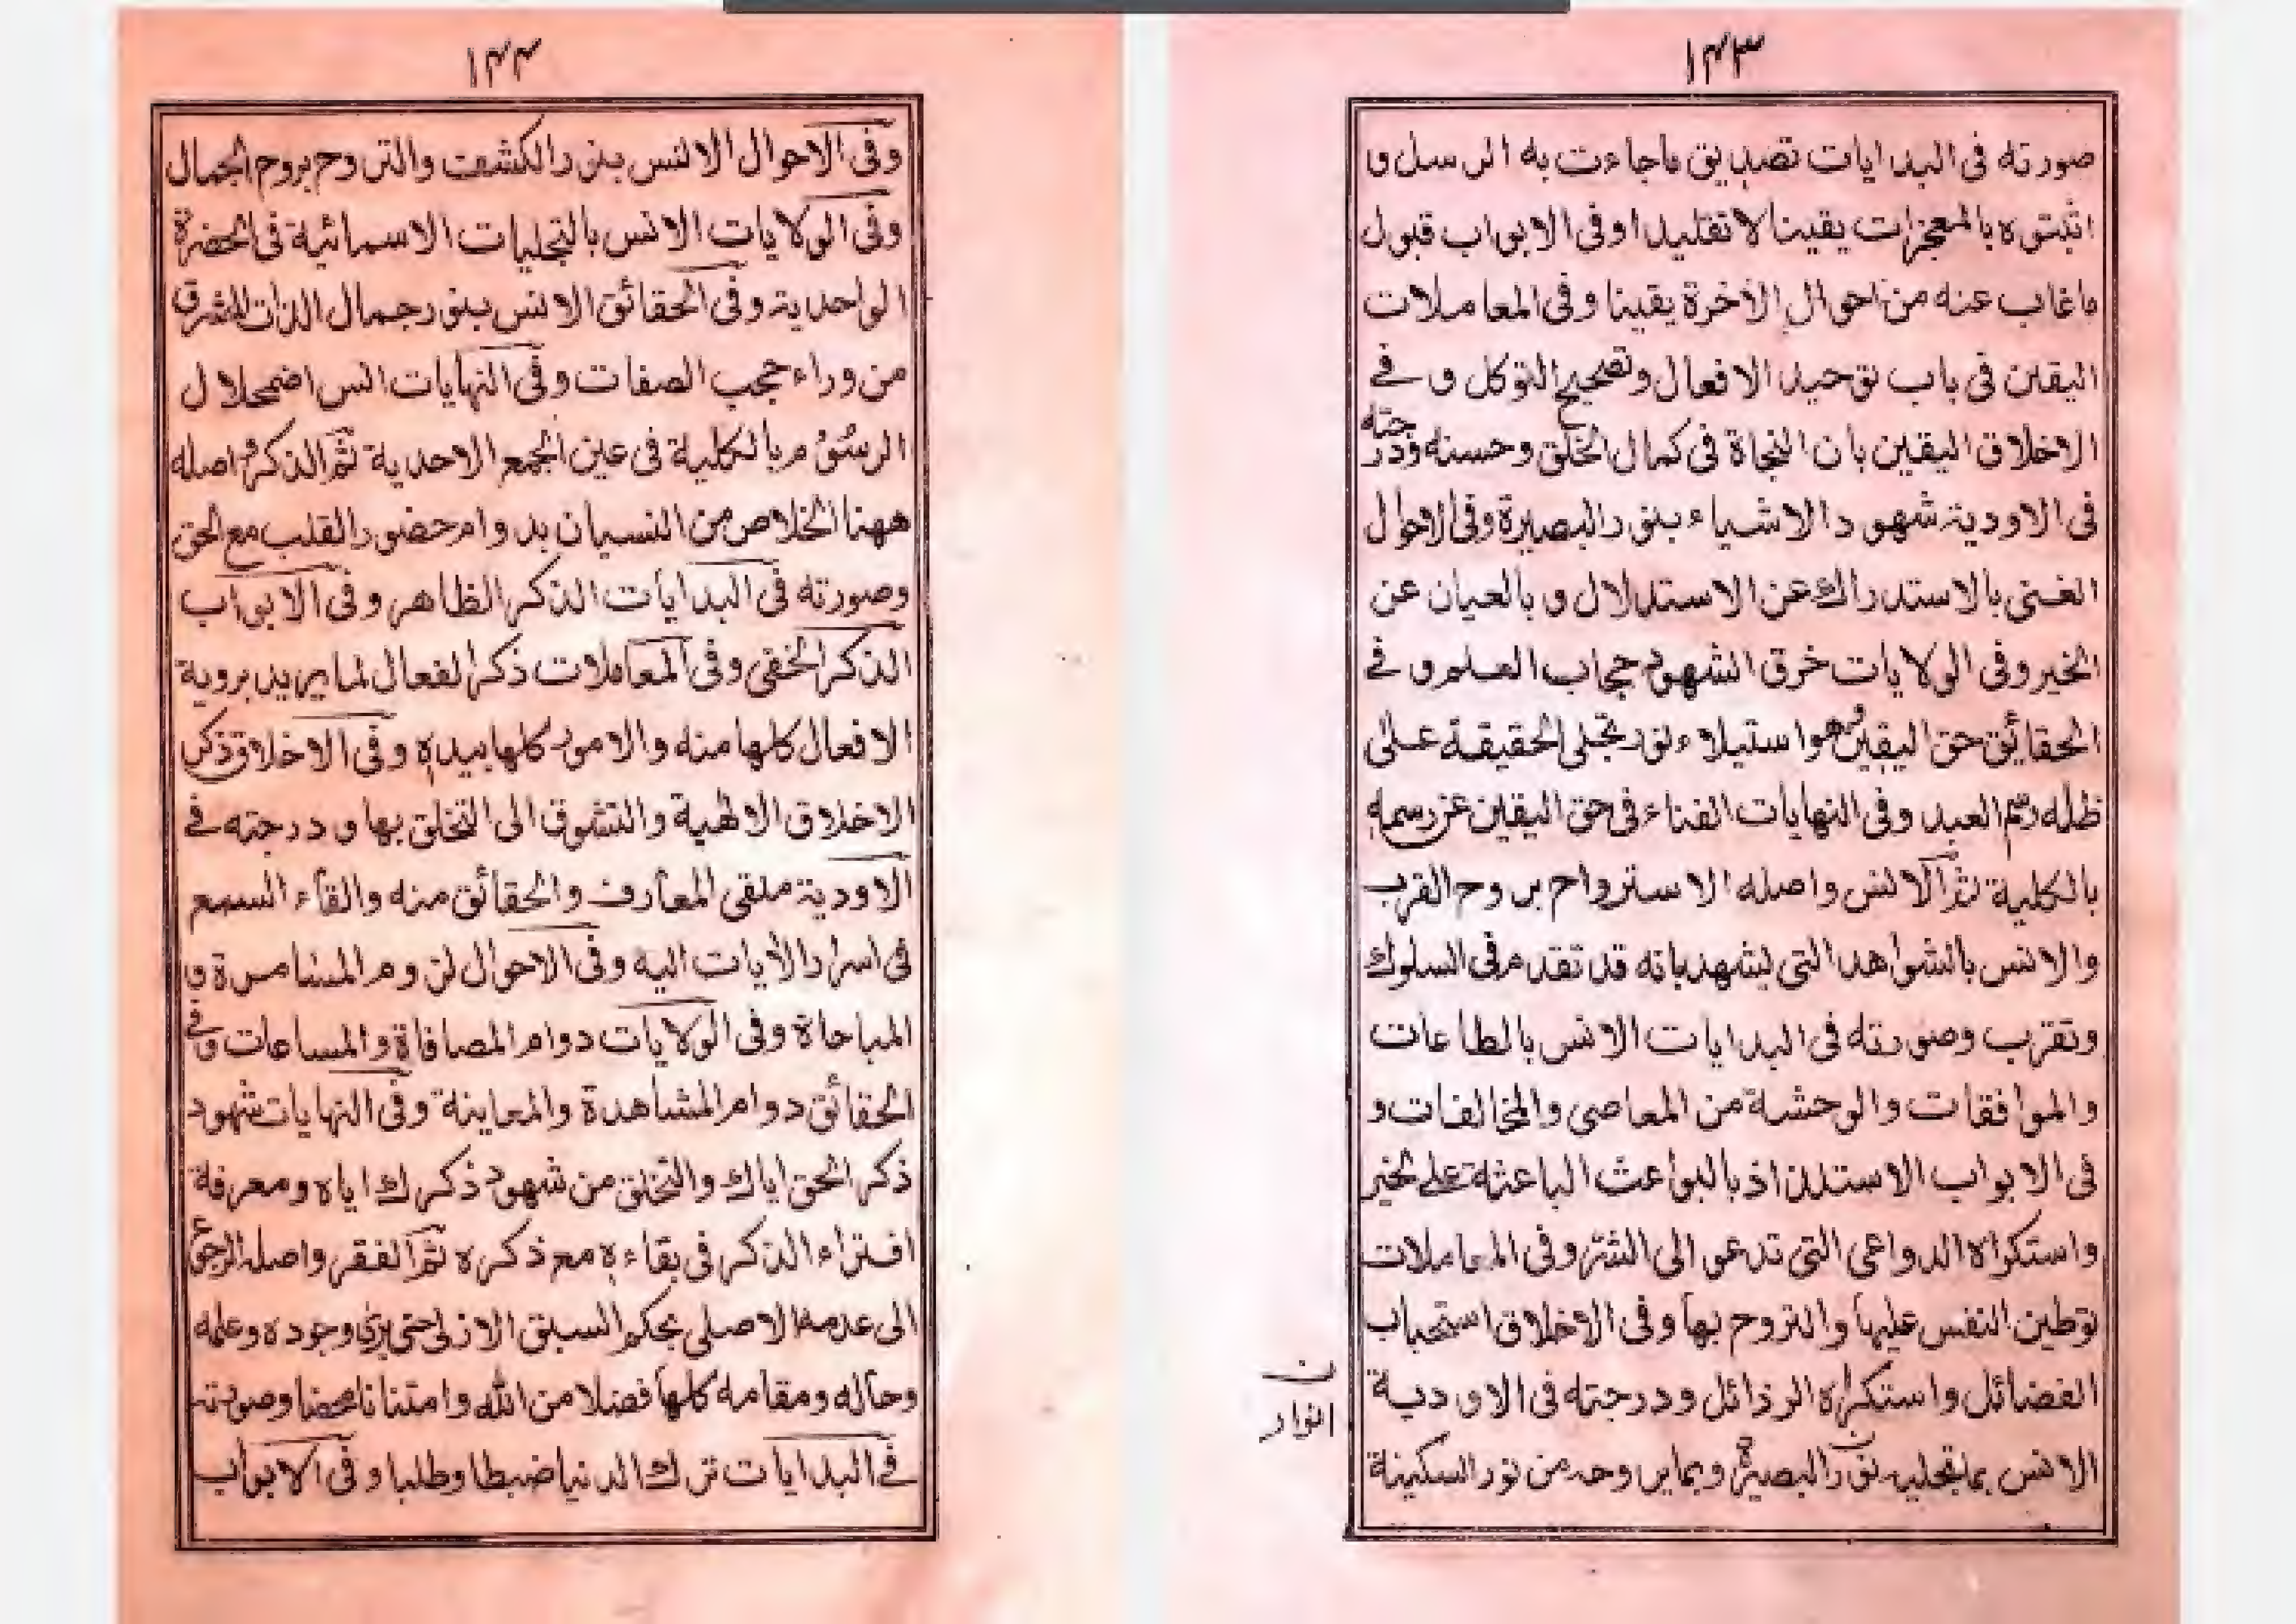 ١٤٣
صورته فى البدايات تصديق ماجاءت به الرسل و
اثبتوه بالمعجزات يقينا لا تقليدا وفى الابواب قبول
ماغاب عنه من احوال الآخرة يقينا وفى المعاملات
اليقين فى باب توحيد الافعال وتصحيح التوكل و فے
الاخلاق اليقين بان النجاة فى كمال الخلق وحسنه ودرجته
فى الاودية شهود الاشياء بنور البصيرة وفى الاحوال
الغنى بالاستدراك عن الاستدلال و بالعيان عن
الخبر وفى الولايات خرق الشهود حجاب العلم و فے
الحقائق حق اليقين وهو استيلاء نور تجلى الحقيقة على
ظلمه رسم العبد وفى النهايات الفناء فى حق اليقين عن رسمه
بالكلية ثم الانس واصله الاسترواح بروح القرب
والانس بالشواهد التى ليشهد بانه قد تقدم فى السلوك
وتقرب وصورته فى البدايات الانس بالطاعات
والموافقات والوحشة من المعاصى والمخالفات و
فى الابواب الاستلذاذ بالبواعث الباعثة على الخير
واستكراه الدواعى التى تدعو الى الشر وفى المعاملات
توطين النفس عليها والتروح بها وفى الاخلاق استحباب
الفضائل واستكراه الرذائل ودرجته فى الاودية
الانس بما تجليه نور البصيرة وبما يروحه من نور السكينة
ن
انوار
١٤٤
وفى الاحوال الانس بنور الكشف والتروح بروح الجمال
وفى الولايات الانس بالتجليات الاسمائية فى الحضرة
الواحدية وفى الحقائق الانس بنور جمال الذات المشرق
من وراء حجب الصفات وفى النهايات انس اضمحلال
الرسوم بالكلية فى عين الجمع الاحدية ثم الذكر واصله
ههنا الخلاص من النسيان بدوام حضور القلب مع الحق
وصورته فى البدايات الذكر الظاهر وفى الابواب
الذكر الخفى وفى المعاملات ذكر الفعال لما يريد بروية
الافعال كلها منه والامور كلها بيده وفى الاخلاق ذكر
الاخلاق الالهية والتشوق الى التخلق بها و درجته فے
الاودية ملقى المعارف والحقائق منه والقاء السمع
فى اسرار الآيات اليه وفى الاحوال لزوم المسامرة و
المباحاة وفى الولايات دوام المصافاة والمساعات وفے
الحقائق دوام المشاهدة والمعاينة وفى النهايات شهود
ذكر الحق اياك والتخلق من شهود ذكرك اياه ومعرفة
افتراء الذكر فى بقاءه مع ذكره ثم الفقر واصله الرجوع
الى عدمه الاصلى بحكم السبق الازلى حتى يرى وجوده وعلمه
وحاله ومقامه كلها فضلا من الله وامتنانا محضا وصورته
فے البدايات ترك الدنيا ضبطا وطلبا و فى الابواب